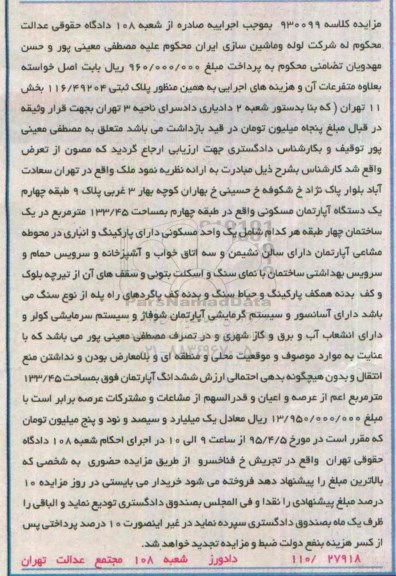 مزایده کلاسه ۹۳۰۰۹۹ بموجب اجراییه صادره از شعبه ۱۰۸ دادگاه حقوقی عدالت
محکوم له شرکت لوله وماشین سازی ایران محکوم علیه مصطفی معینی پور و حسن
مهدویان تضامنی محکوم به پرداخت مبلغ ۹۶۰/۰۰۰/۰۰۰ ریال بابت اصل خواسته
بعلاوه متفرعات آن و هزینه های اجرایی به همین منظور پلاک ثبتی ۱۱۶/۴۹۲۰۴ بخش
۱۱ تهران ( که بنا بدستور شعبه ۲ دادیاری دادسرای ناحیه ۳ تهران بجهت قرار وثیقه
در قبال مبلغ پنجاه میلیون تومان در قید بازداشت می باشد متعلق به مصطفی معینی
پور توقیف و بکارشناس دادگستری جهت ارزیابی ارجاع گردید که مصون از تعرض
واقع شد کارشناس بشرح ذیل مبادرت به ارائه نظریه نمود ملک واقع در تهران سعادت
آباد بلوار پاک نژاد خ شکوفه خ حسینی خ بهاران کوچه بهار ۳ غربی پلاک ۹ طبقه چهارم
یک دستگاه آپارتمان مسکونی واقع در طبقه چهارم بمساحت ۱۳۳/۴۵ مترمربع در یک
ساختمان چهار طبقه هر کدام شامل یک واحد مسکونی دارای پارکینگ و انباری در محوطه
مشاعی آپارتمان دارای سالن نشیمن و سه اتاق خواب و آشپزخانه و سرویس حمام و
سرویس بهداشتی ساختمان با نمای سنگ و اسکلت بتونی و سقف های آن از تیرچه بلوک
و کف بدنه همکف پارکینگ و حیاط سنگ و بدنه کف پاگردهای راه پله از نوع سنگ می
باشد دارای آسانسور و سیستم گرمایشی آپارتمان شوفاژ و سیستم سرمایشی کولر و
دارای انشعاب آب و برق و گاز شهری و در تصرف مصطفی معینی پور می باشد که با
عنایت به موارد موصوف و موقعیت محلی و منطقه ای و بلامعارض بودن و نداشتن منع
انتقال و بدون هیچگونه بدهی احتمالی ارزش ششدانگ آپارتمان فوق بمساحت ۱۳۳/۴۵
مترمربع اعم از عرصه و اعیان و قدرالسهم از مشاعات و مشترکات عرصه برابر است با
مبلغ ۱۳/۹۵۰/۰۰۰/۰۰۰ ریال معادل یک میلیارد و سیصد و نود و پنج میلیون تومان
که مقرر است در مورخ ۹۵/۴/۵ از ساعت ۹ الی ۱۰ در اجرای احکام شعبه ۱۰۸ دادگاه
حقوقی تهران واقع در تجریش خ فناخسرو از طریق مزایده حضوری به شخصی که
بالاترین مبلغ را پیشنهاد دهد فروخته می شود خریدار می بایستی در روز مزایده ۱۰
درصد مبلغ پیشنهادی را نقدا و فی المجلس بصندوق دادگستری تودیع نماید و الباقی را
ظرف یک ماه بصندوق دادگستری سپرده نماید در غیر اینصورت ۱۰ درصد پرداختی پس
از کسر هزینه بنفع دولت ضبط و مزایده تجدید خواهد شد.
۱۱۰/ ۲۷۹۱۸ دادورز شعبه ۱۰۸ مجتمع عدالت تهران
ParsNamadData